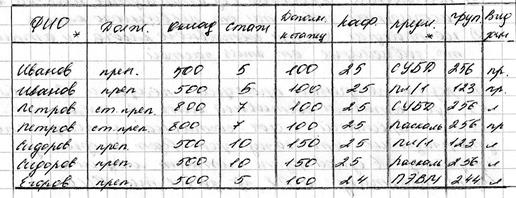 ФИО * Долж. Оклад Стаж Дополн. к стажу Каф. Предм. * Груп Вид зан.
Иванов преп. 500 5 100 25 СУБД 256 пр.
Иванов преп. 500 5 100 25 Пл/1 123 пр.
Петров ст.преп. 800 7 100 25 СУБД 256 л
Петров ст.преп. 800 7 100 25 Паскаль 256 пр
Сидоров преп. 500 10 150 25 Пл/1 123 л
Сидоров преп. 500 10 150 25 Паскаль 256 л
Егоров преп. 500 5 100 24 ПЭВМ 244 л